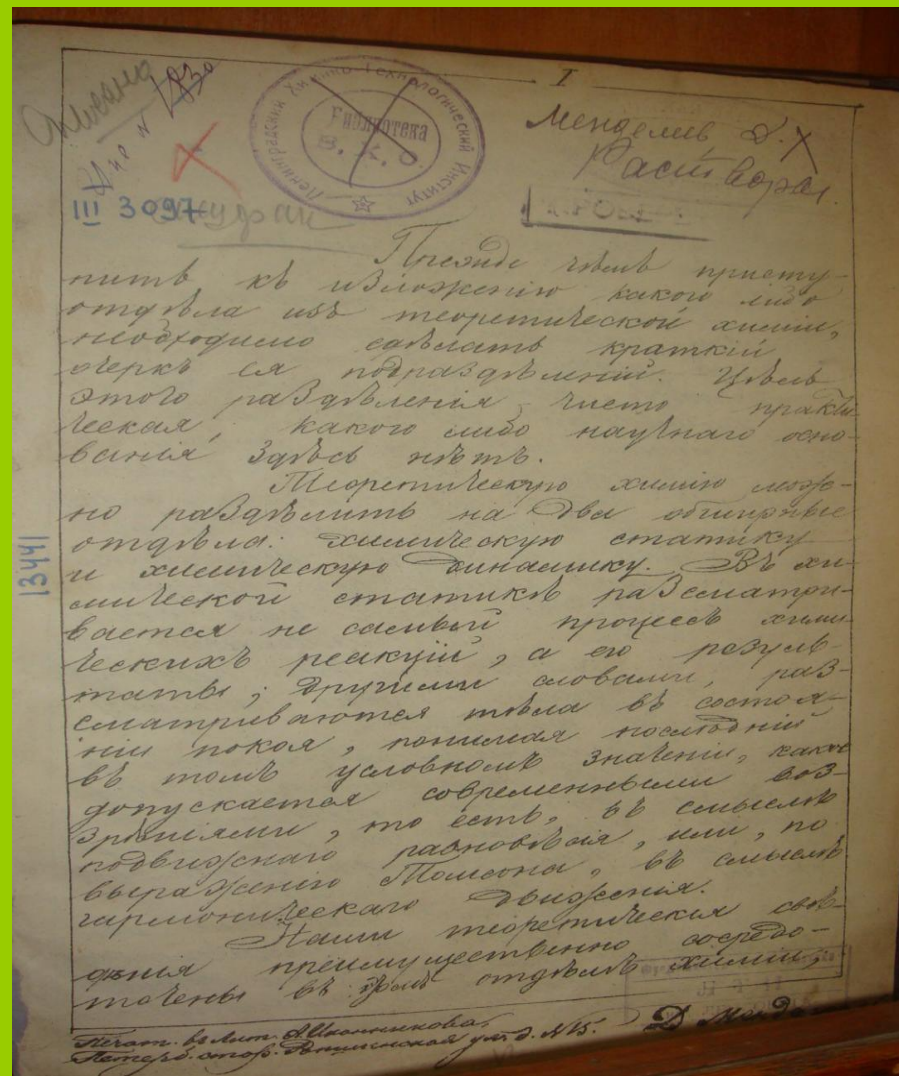 I
Инв N 1830
Менделив Д.
Растворы.
Ленинградский Химико-Технологический Институт
Библиотека
III 3097
13441
Прежде чѣмъ присту-
пить къ изложенію какого либо
отдѣла изъ теоретической химіи,
необходимо сдѣлать краткій
очеркъ ея подраздѣленій. Цѣль
этого раздѣленія чисто практи
ческая, какого либо научнаго осно-
ванія здѣсь нѣтъ.
Теоретическую химію мож-
но раздѣлить на два обширные
отдѣла: химическую статику
и химическую динамику. Въ хи-
мической статикѣ разсматри-
вается не самый процессъ хими
ческихъ реакцій, а его резуль-
таты; другими словами, раз-
сматриваются тѣла въ состоя-
ніи покоя, понимая послѣдній
въ томъ условномъ значеніи, какое
допускается современными воз-
зрѣніями, то есть, въ смыслѣ
подвижнаго равновѣсія, или, по
выраженію Томсона, въ смыслѣ
гармоническаго движенія.
Наши теоретическія свѣ-
дѣнія преимущественно сосредо-
точены въ этомъ отдѣлѣ химіи,
Печат. въ Лит. А. Иконникова.
Петерб. стор. ул. д. №15. Д.